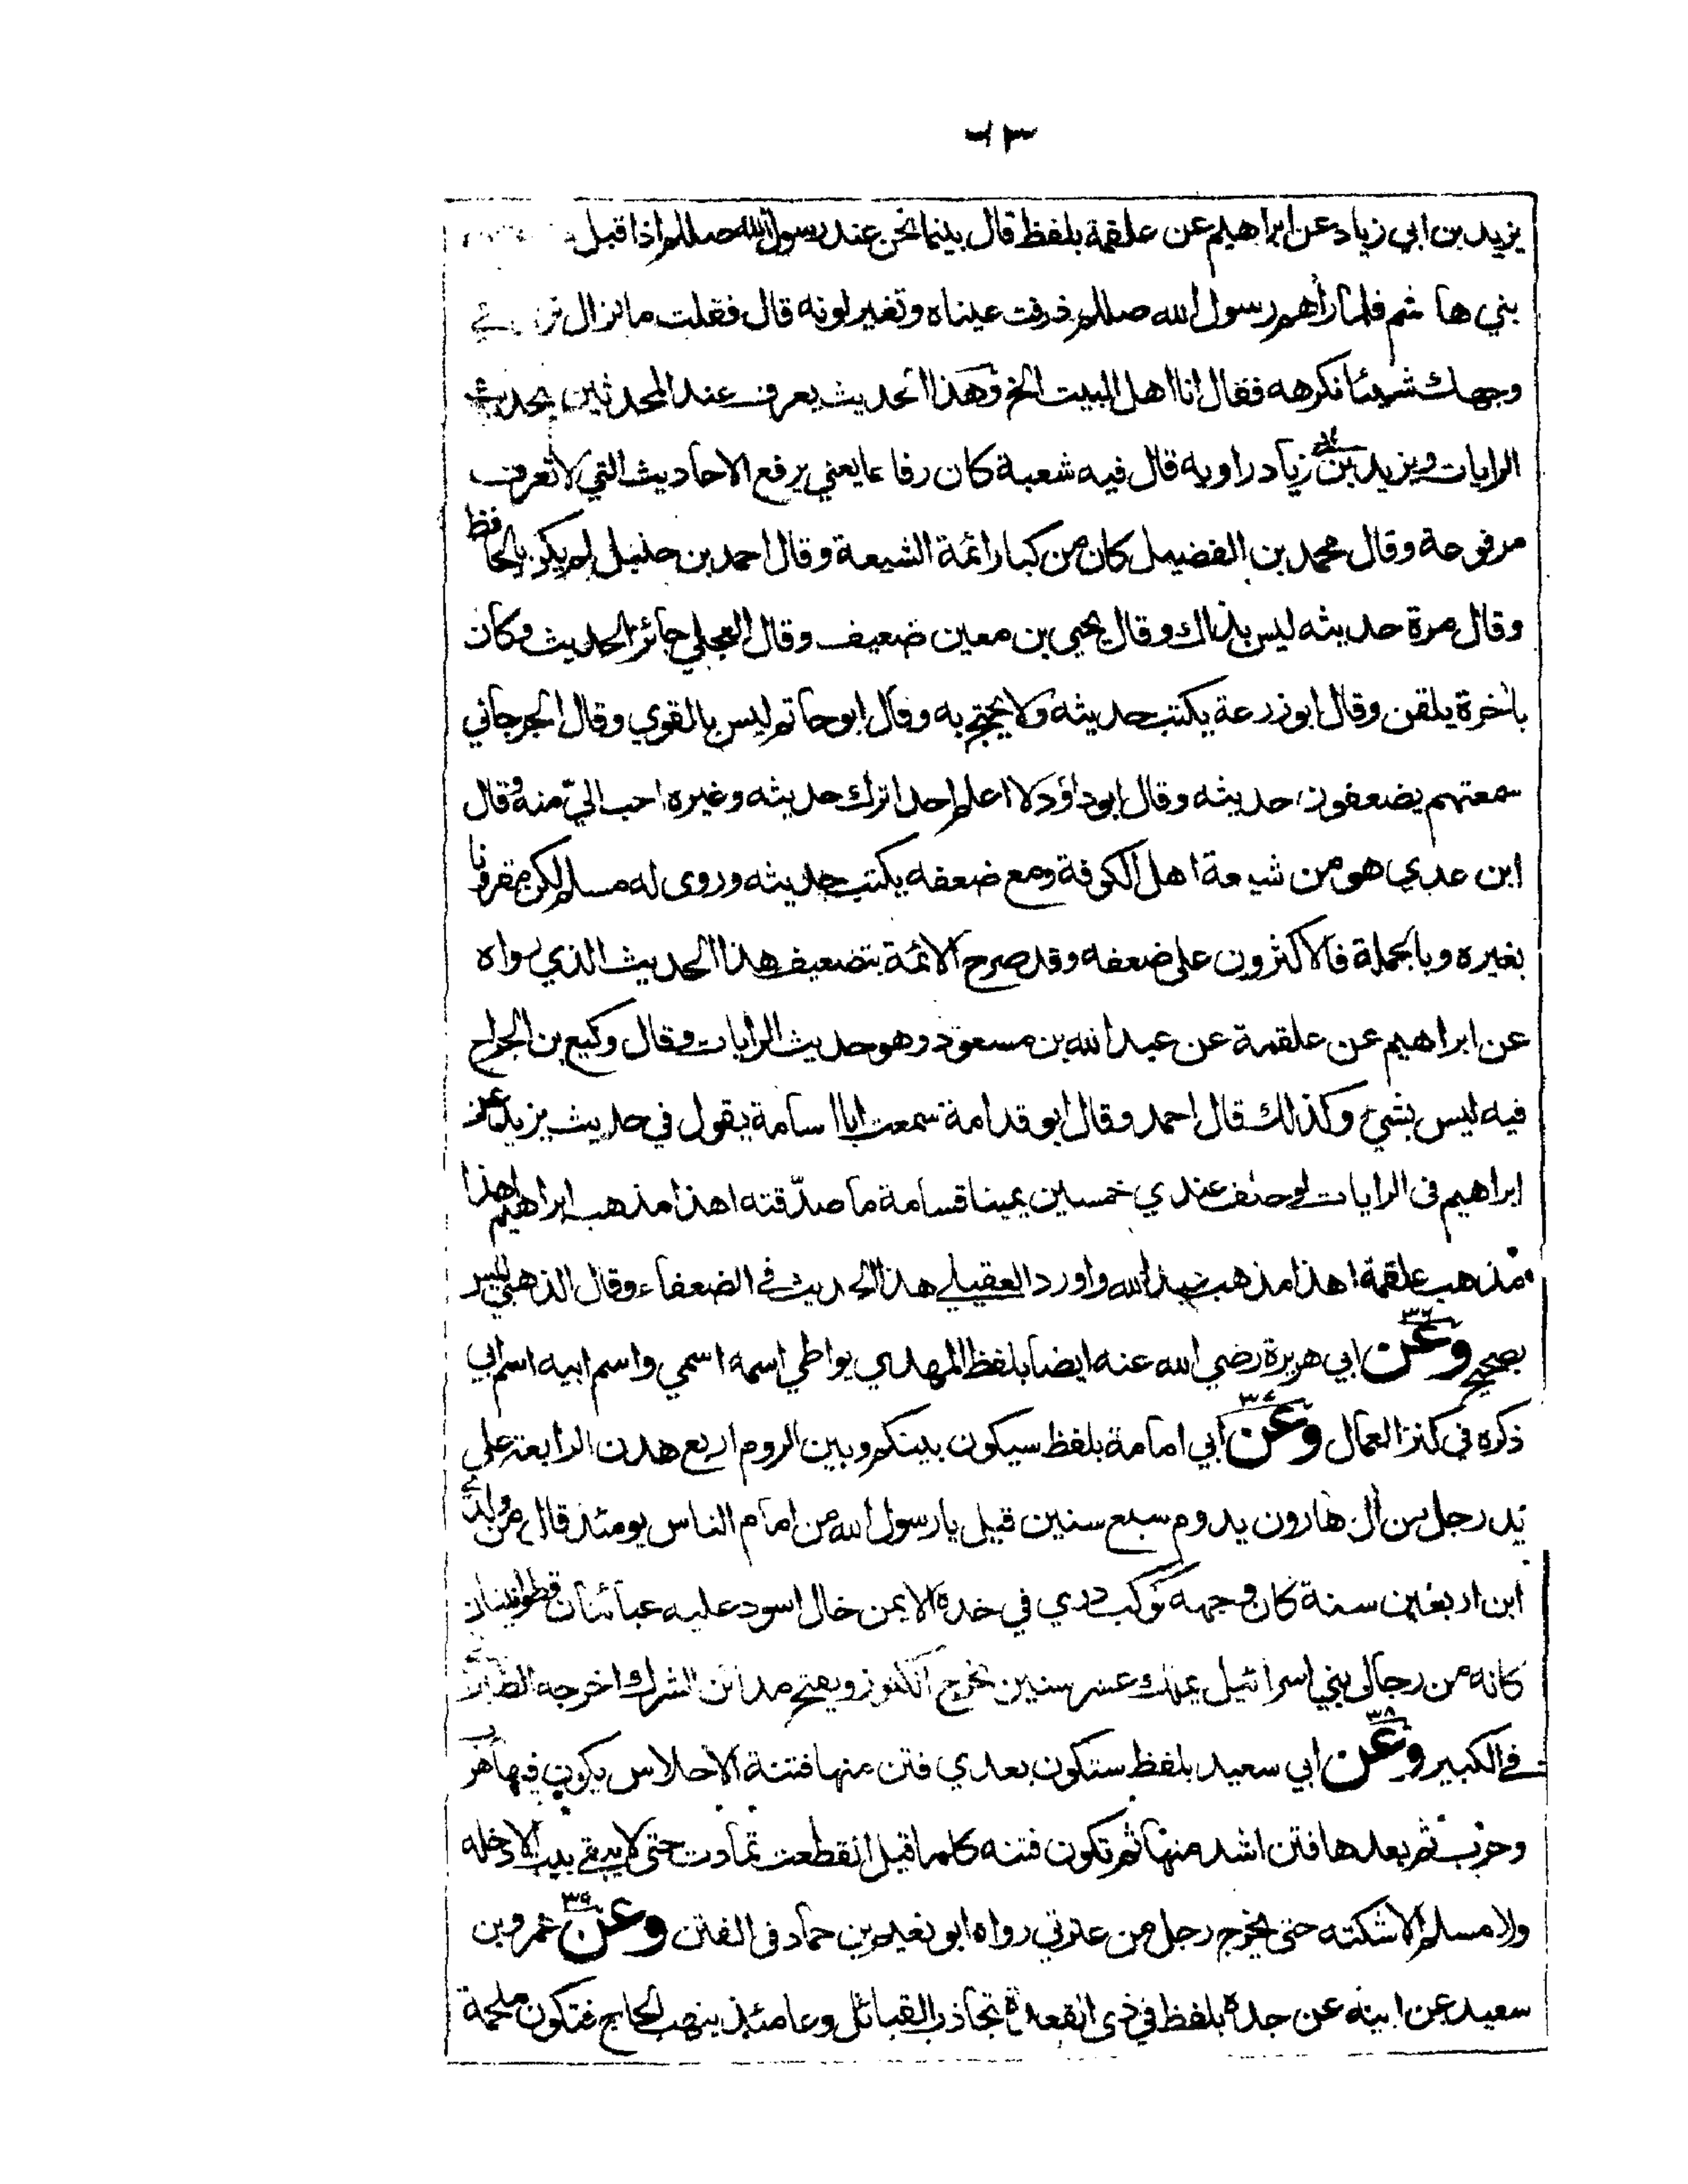 ٦٣
يزيد بن ابي زياد عن ابراهيم عن علقمة بلفظ قال بينما نحن عند رسول الله صللم اذا قبل
بني هاشم فلما رأهم رسول الله صللم ذرفت عيناه وتغير لونه قال فقلت ما نزال نرى في
وجهك شيئا نكرهه فقال انا اهل البيت الخ وهذا الحديث يعرف عند المحدثين بحديث
الرايات ويزيد بن ابي زياد راويه قال فيه شعبة كان رفاعا يعني يرفع الاحاديث التي لا تعرف
مرفوعة وقال محمد بن الفضيل كان من كبار ائمة الشيعة وقال احمد بن حنبل لم يكن بالحافظ
وقال مرة حديثه ليس بذاك وقال يحيى بن معين ضعيف وقال العجلي جائز الحديث وكان
بأخرة يلقن وقال ابو زرعة يكتب حديثه ولا يحتج به وقال ابو حاتم ليس بالقوي وقال الجرجاني
سمعتهم يضعفون حديثه وقال ابو داؤد لا اعلم احدا ترك حديثه وغيره احب اليّ منه وقال
ابن عدي هو من شيعة اهل الكوفة ومع ضعفه يكتب حديثه وروى له مسلم لكن مقرونا
بغيره وبالجملة فالاكثرون على ضعفه وقد صرح الائمة بتضعيف هذا الحديث الذي رواه
عن ابراهيم عن علقمة عن عبد الله بن مسعود وهو حديث الرايات وقال وكيع بن الجراح
فيه ليس بشئ وكذلك قال احمد وقال ابو قدامة سمعت ابا اسامة يقول في حديث يزيد عن
ابراهيم فى الرايات لو حلف عندي خمسين يمينا قسامة ما صدّقته اهذا مذهب ابراهيم اهذا
مذهب علقمة اهذا مذهب عبد الله واورد العقيلي هذا الحديث في الضعفاء وقال الذهبي ليس
بصحيح وعن ٣٦ ابي هريرة رضي الله عنه ايضا بلفظ المهدي يواطي اسمه اسمي واسم ابيه اسم ابي
ذكره في كنز العمال وعن ٣٧ أبي امامة بلفظ سيكون بينكم وبين الروم اربع هدن الرابعة على
يد رجل من أل هارون يدوم سبع سنين قيل يا رسول الله من امام الناس يومئذ قال من ولدي
ابن اربعين سنة كان وجهه كوكب دري في خده الايمن خال اسود عليه عبائتان قطوانيتان
كانه من رجال بني اسرائيل يملك عشر سنين يخرج الكنوز ويفتح مدائن الشرك اخرجه الطبراني
في الكبير وعن ٣٨ ابي سعيد بلفظ ستكون بعدي فتن منها فتنة الاحلاس يكون فيها هرب
وحرب ثم بعدها فتن اشد منها ثم تكون فتنه كلما قيل انقطعت تمادت حتى لا يبقى بيت الا دخله
ولا مسلم الا شكته حتى يخرج رجل من عترتي رواه ابو نعيم بن حماد فى الفتن وعن ٣٩ عمرو بن
سعيد عن ابيه عن جده بلفظ في ذى القعدة تجاذب القبائل وعامئذ ينهب الحاج فتكون ملحمة